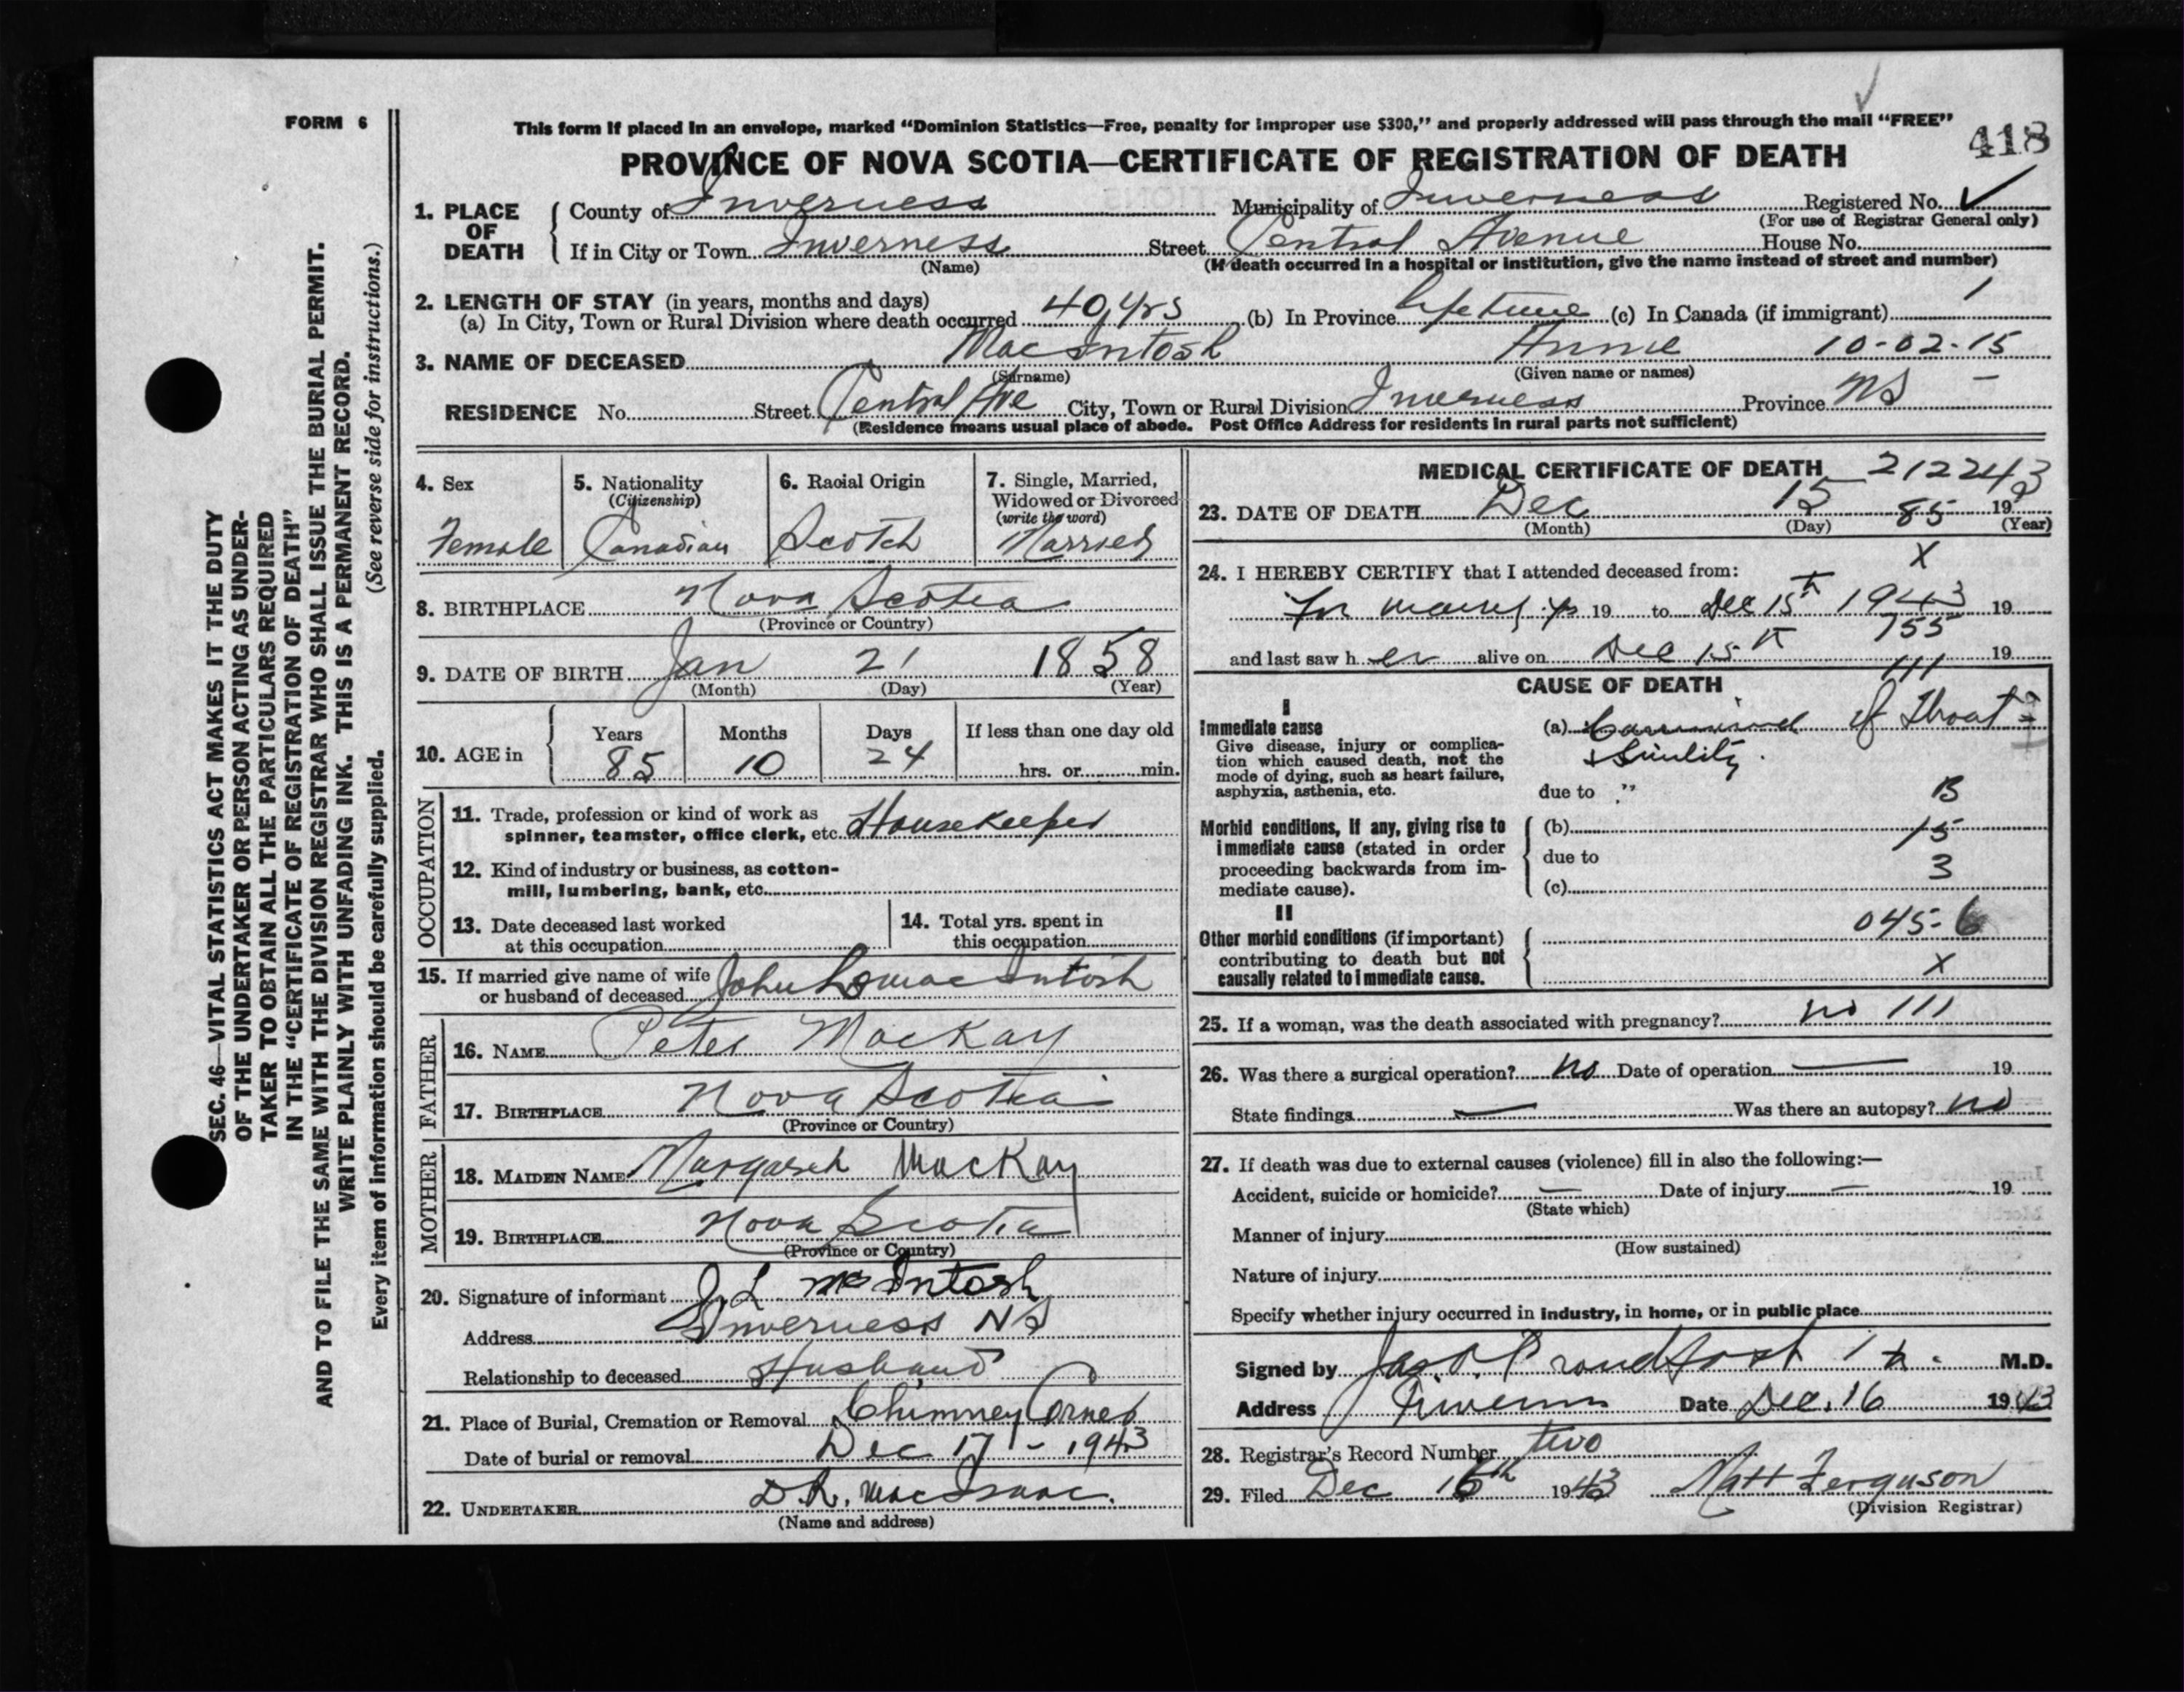 FORM 6
This form if placed in an envelope, marked "Dominion Statistics—Free, penalty for improper use $300," and properly addressed will pass through the mail "FREE"
418
PROVINCE OF NOVA SCOTIA—CERTIFICATE OF REGISTRATION OF DEATH
1. PLACE OF DEATH
County of Inverness Municipality of Inverness Registered No.
(For use of Registrar General only)
If in City or Town Inverness Street Central Avenue House No.
(Name) (If death occurred in a hospital or institution, give the name instead of street and number)
2. LENGTH OF STAY (in years, months and days)
(a) In City, Town or Rural Division where death occurred 40 yrs (b) In Province lifetime (c) In Canada (if immigrant)
3. NAME OF DECEASED MacIntosh Annie 10-02-15
(Surname) (Given name or names)
RESIDENCE No. Street Central Ave City, Town or Rural Division Inverness Province NS
(Residence means usual place of abode. Post Office Address for residents in rural parts not sufficient)
SEC. 46—VITAL STATISTICS ACT MAKES IT THE DUTY
OF THE UNDERTAKER OR PERSON ACTING AS UNDER-
TAKER TO OBTAIN ALL THE PARTICULARS REQUIRED
IN THE "CERTIFICATE OF REGISTRATION OF DEATH"
AND TO FILE THE SAME WITH THE DIVISION REGISTRAR WHO SHALL ISSUE THE BURIAL PERMIT.
WRITE PLAINLY WITH UNFADING INK. THIS IS A PERMANENT RECORD.
Every item of information should be carefully supplied. (See reverse side for instructions.)
4. Sex
Female
5. Nationality
(Citizenship)
Canadian
6. Racial Origin
Scotch
7. Single, Married,
Widowed or Divorced
(write the word)
Married
8. BIRTHPLACE Nova Scotia
(Province or Country)
9. DATE OF BIRTH Jan 21 1858
(Month) (Day) (Year)
10. AGE in
Years Months Days If less than one day old
85 10 24 hrs. or min.
OCCUPATION
11. Trade, profession or kind of work as
spinner, teamster, office clerk, etc. Housekeeper
12. Kind of industry or business, as cotton-
mill, lumbering, bank, etc.
13. Date deceased last worked
at this occupation
14. Total yrs. spent in
this occupation
15. If married give name of wife
or husband of deceased John L MacIntosh
FATHER
16. NAME Peter MacKay
17. BIRTHPLACE Nova Scotia
(Province or Country)
MOTHER
18. MAIDEN NAME Margaret MacKay
19. BIRTHPLACE Nova Scotia
(Province or Country)
20. Signature of informant J L McIntosh
Address Inverness NS
Relationship to deceased Husband
21. Place of Burial, Cremation or Removal Chimney Corner
Date of burial or removal Dec 17 - 1943
22. UNDERTAKER D R. MacIsaac.
(Name and address)
MEDICAL CERTIFICATE OF DEATH 212243
23. DATE OF DEATH Dec 15 85 19
(Month) (Day) (Year)
X
24. I HEREBY CERTIFY that I attended deceased from:
for many yrs 19 to Dec 15th 1943 19
755
and last saw her alive on Dec 15th 19
111
CAUSE OF DEATH
I
Immediate cause
Give disease, injury or complica-
tion which caused death, not the
mode of dying, such as heart failure,
asphyxia, asthenia, etc.
(a) of throat
& Senility.
due to "
B
Morbid conditions, if any, giving rise to
immediate cause (stated in order
proceeding backwards from im-
mediate cause).
(b) 15
due to 3
(c)
II
Other morbid conditions (if important)
contributing to death but not
causally related to immediate cause.
045-6
X
25. If a woman, was the death associated with pregnancy? no 111
26. Was there a surgical operation? no Date of operation — 19
State findings — Was there an autopsy? no
27. If death was due to external causes (violence) fill in also the following:—
Accident, suicide or homicide? — Date of injury — 19
(State which)
Manner of injury
(How sustained)
Nature of injury
Specify whether injury occurred in industry, in home, or in public place
Signed by Jas. Proudfoot M.D.
Address Inverness Date Dec. 16 1943
28. Registrar's Record Number two
29. Filed Dec 16th 1943 Matt Ferguson
(Division Registrar)